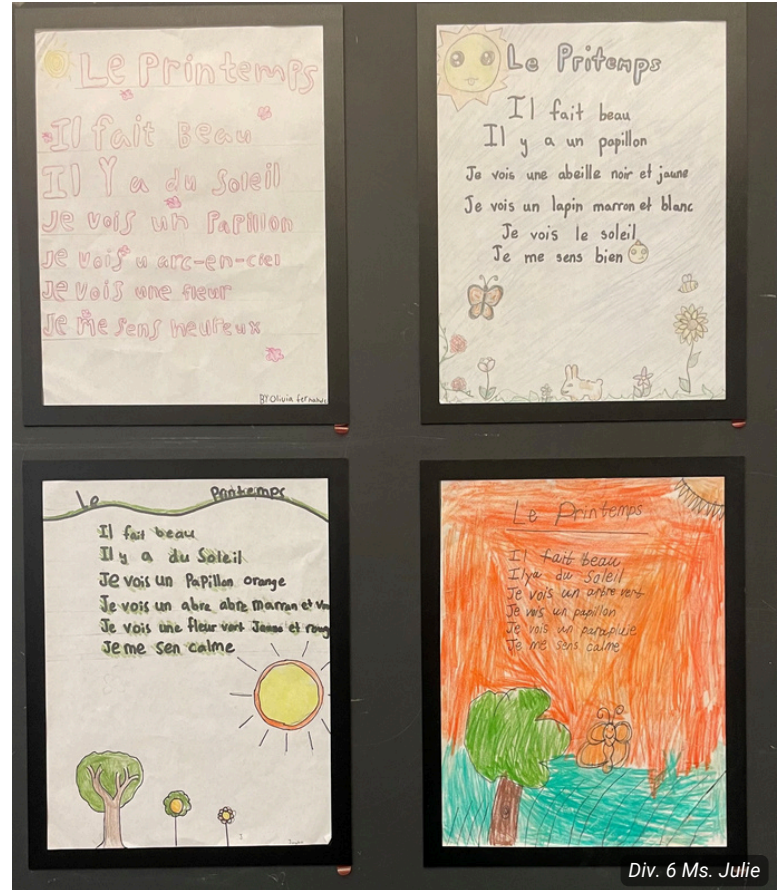 Le Printemps
Il fait Beau
Il Y a du Soleil
Je vois un Papillon
Je vois u arc-en-ciel
Je vois une fleur
Je me sens heureux
BY Olivia
Le Pritemps
Il fait beau
Il y a un papillon
Je vois une abeille noir et jaune
Je vois un lapin marron et blanc
Je vois le soleil
Je me sens bien
Le Printemps
Il fait beau
Il y a du Soleil
Je vois un PaPillon orange
Je vois un abre abre marron et
Je vois une fleur vert Jaune et roug
Je me sen calme
Le Printemps
Il fait beau
Il ya du Soleil
Je vois un arbre vert
Je vois un papillon
Je vois un parapluie
Je me sens calme
Div. 6 Ms. Julie